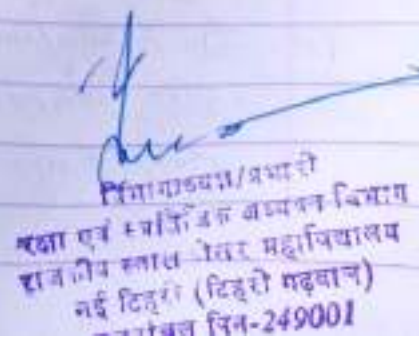 विभागाध्यक्ष/प्रभारी
रक्षा एवं स्त्रातेजिक अध्ययन विभाग
राजकीय स्नातकोत्तर महाविद्यालय
नई टिहरी (टिहरी गढ़वाल)
उत्तरांचल पिन-249001